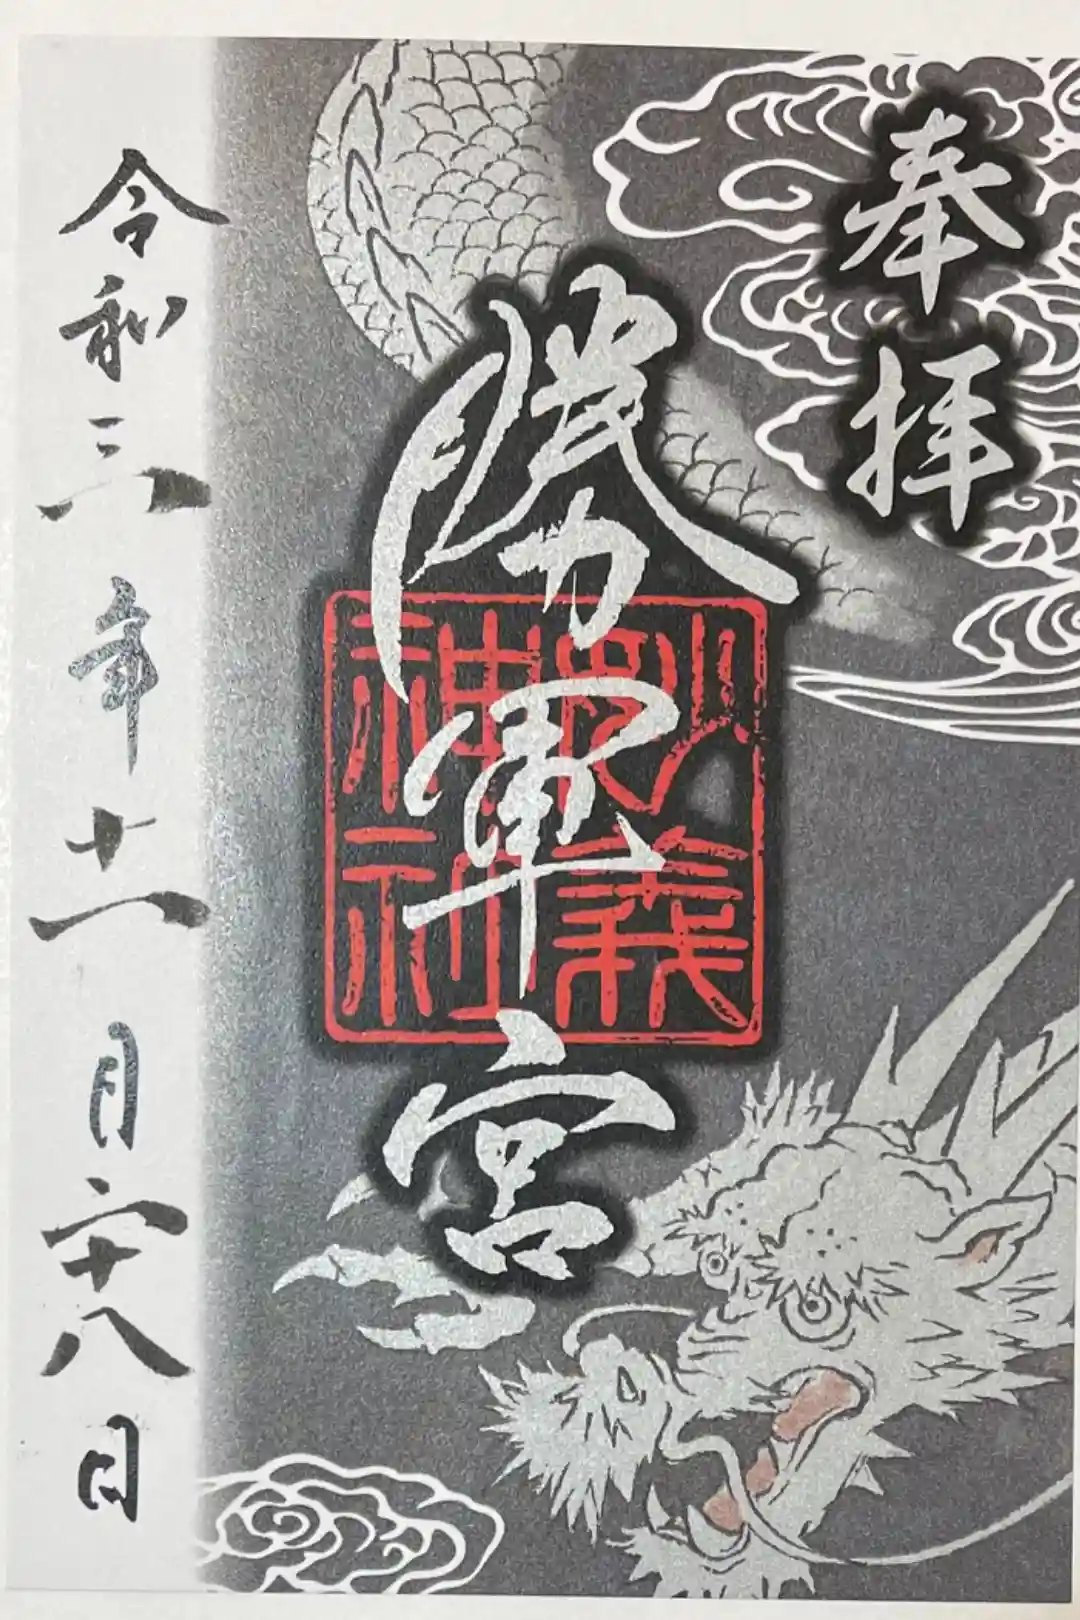 奉拝
勝軍宮
妙義
神社
令和三年十一月二十八日